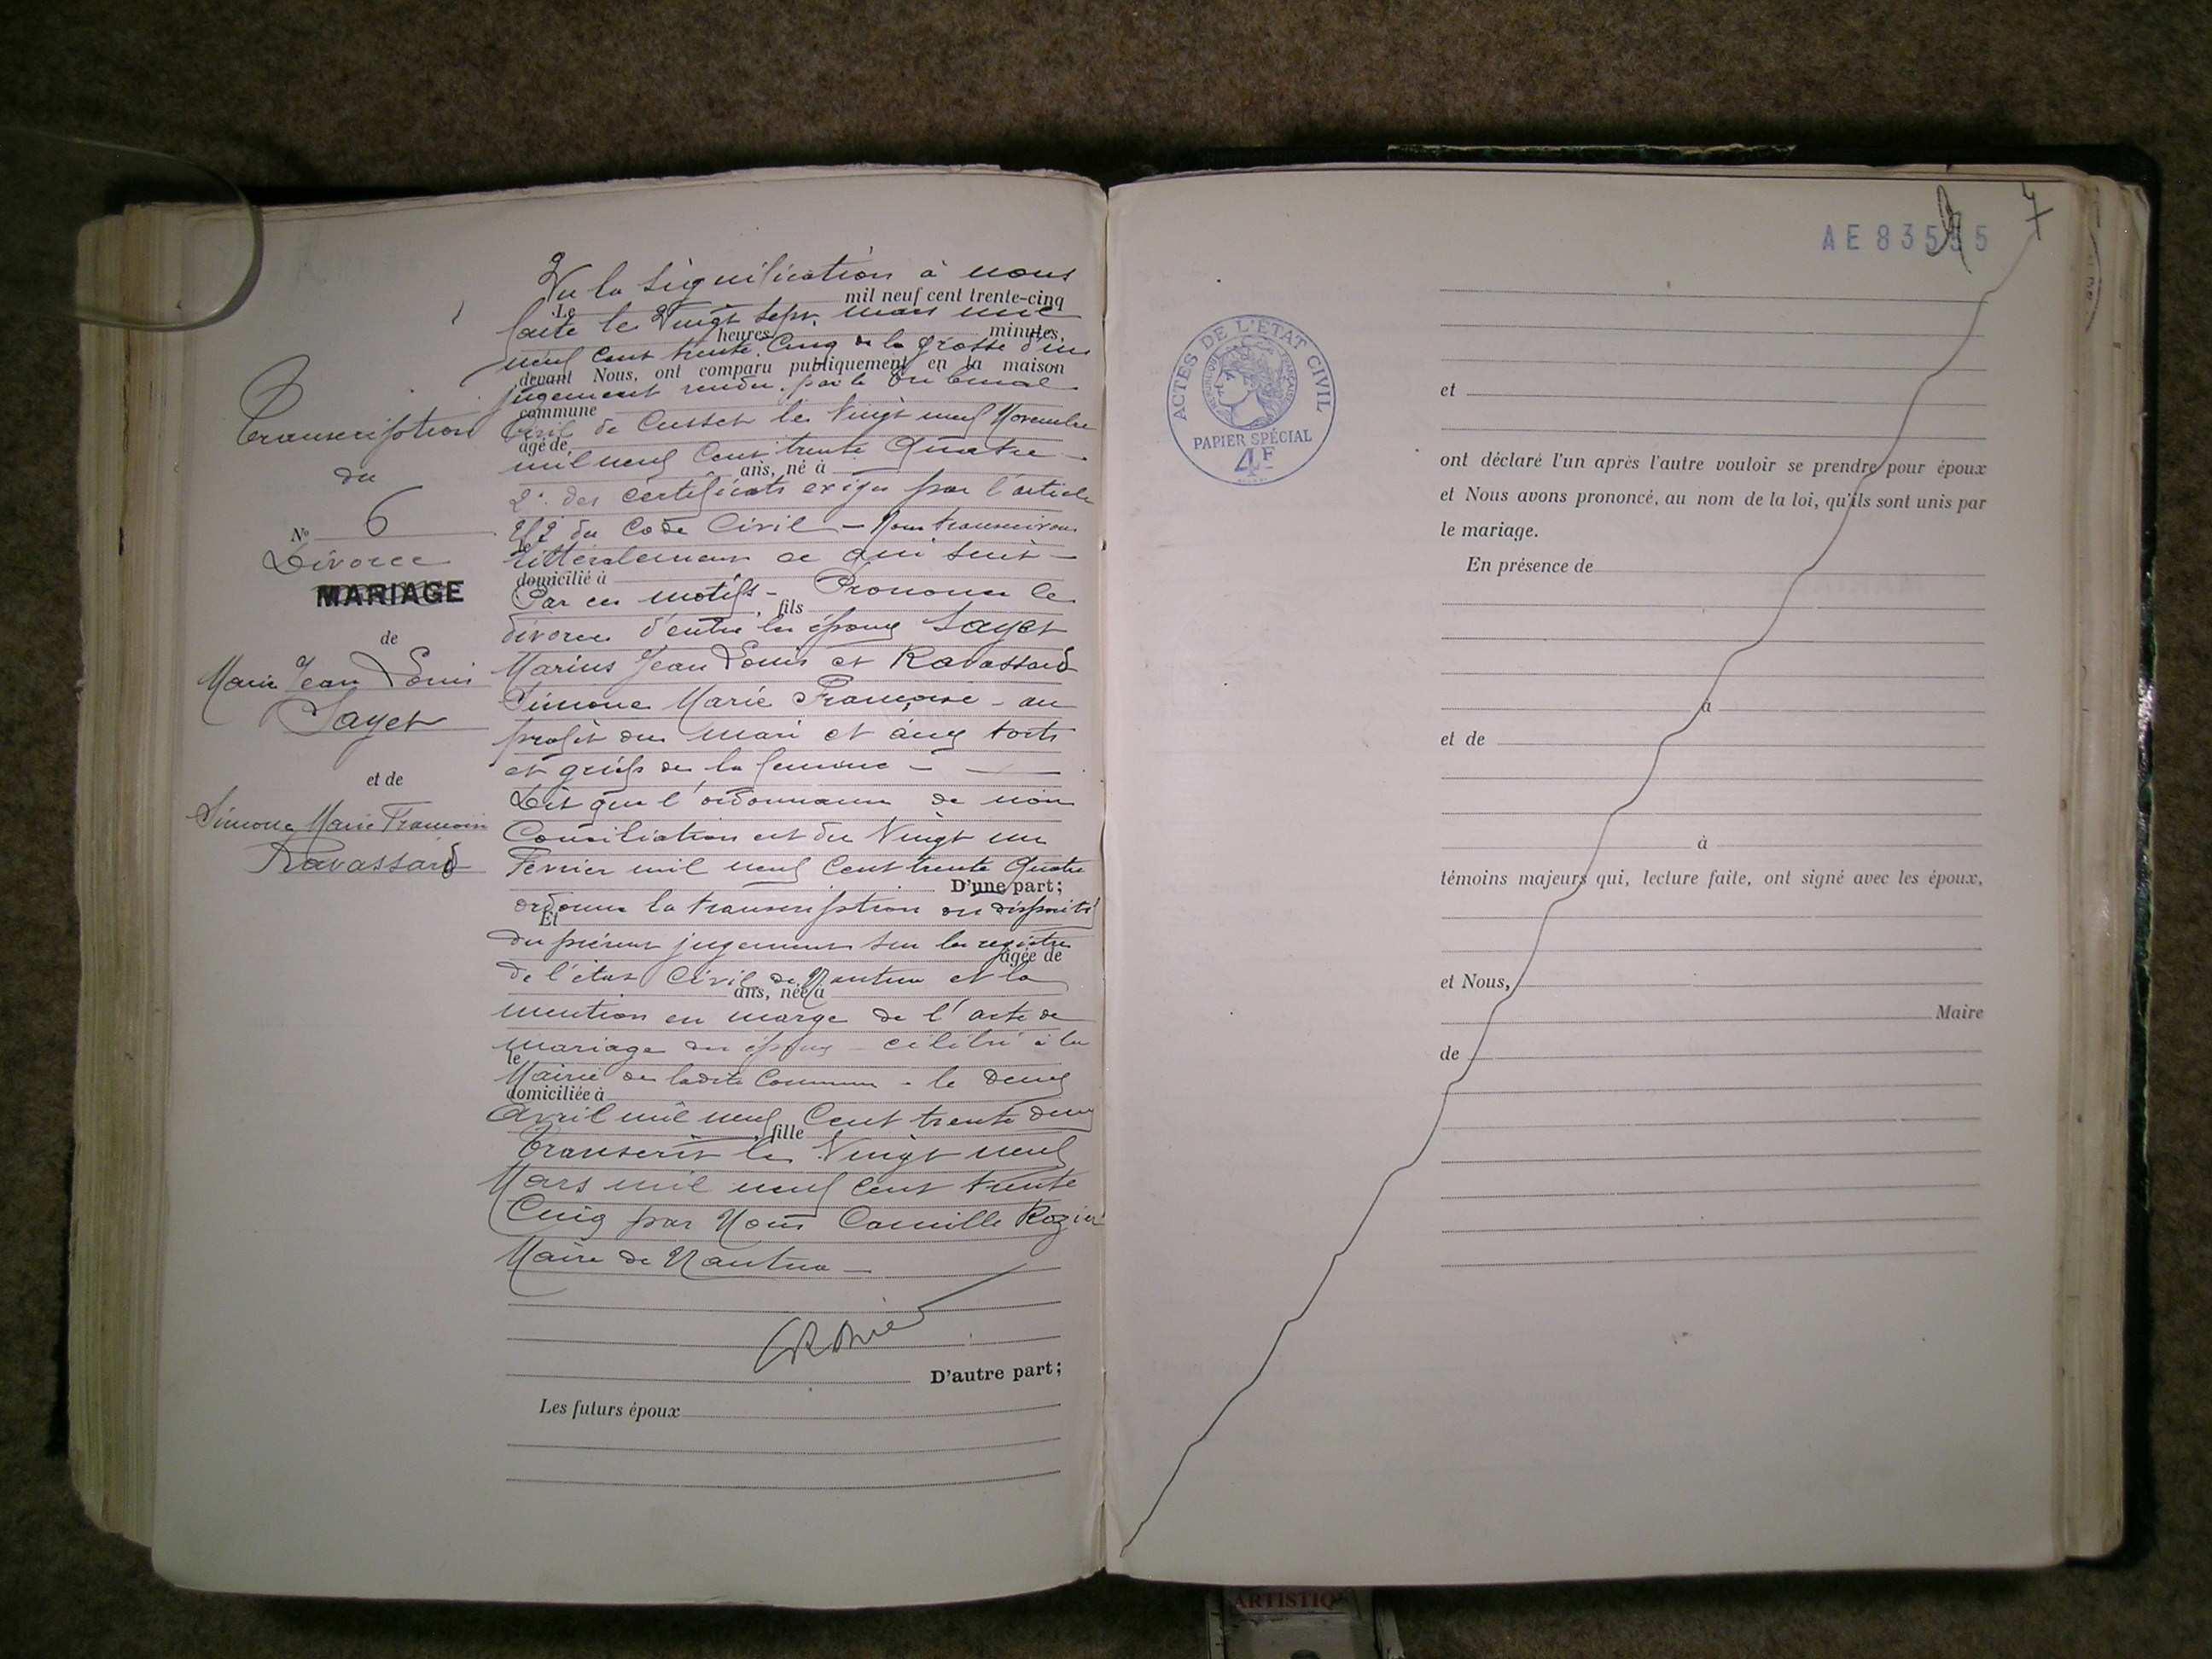 Transcription
du
Nº 6
Divorce
MARIAGE
de
Marie Jean Louis
Sayet
et de
Simone Marie Francoise
Ravassard
Vu la signification à nous
Le mil neuf cent trente-cinq
faite le Vingt sept mars mil
heures minutes,
neuf cent trente Cinq de la grosse d'un
devant Nous, ont comparu publiquement en la maison
jugement rendu par le tribunal
commune
Civil de Cusset le Vingt neuf Novembre
âgé de
mil neuf Cent trente Quatre
ans, né à
2° des certificats exigés par l'article
252 du Code Civil — Nous transcrivons
le
littéralement ce qui suit —
domicilié à
Par ces motifs — Prononce le
, fils
divorce d'entre les époux Sayet
Marius Jean Louis et Ravassard
Simone Marie Françoise — au
profit du mari et aux torts
et griefs de la femme —
Dit que l'ordonnance de non
Conciliation est du Vingt un
Fevrier mil neuf Cent trente Quatre
D'une part;
ordonne la transcription du dispositif
Et
du présent jugement sur les registres
âgée de
de l'état Civil de Nantua et la
ans, née à
mention en marge de l'acte de
mariage des époux célébré à la
le
Mairie de ladite Commune - le deux
domiciliée à
Avril mil neuf Cent trente deux
, fille
Transcrit le Vingt neuf
Mars mil neuf Cent trente
Cinq par Nous Camille Rozier
Maire de Nantua —
D'autre part;
Les futurs époux
4
AE 83
5
ACTES DE L'ETAT CIVIL
RÉPUBLIQUE FRANÇAISE
PAPIER SPÉCIAL
4F
et
ont déclaré l'un après l'autre vouloir se prendre pour époux
et Nous avons prononcé, au nom de la loi, qu'ils sont unis par
le mariage.
En présence de
à
et de
à
témoins majeurs qui, lecture faite, ont signé avec les époux,
et Nous,
Maire
de
ARTISTIQ